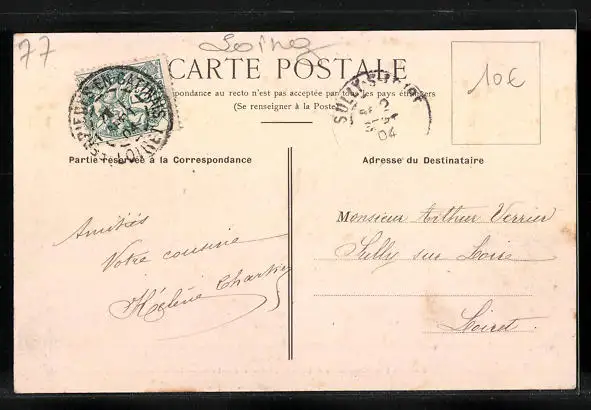 77
Loing
10€
CARTE POSTALE
pondance au recto n'est pas acceptée par tous les pays étrangers
(Se renseigner à la Poste)
LOIRET
SULLY-SUR-LOIRE
04
Partie réservée à la Correspondance
Adresse du Destinataire
Amitiés
Votre cousine
Hélène Chartier
Monsieur Arthur Verrier
Sully sur Loire
Loiret